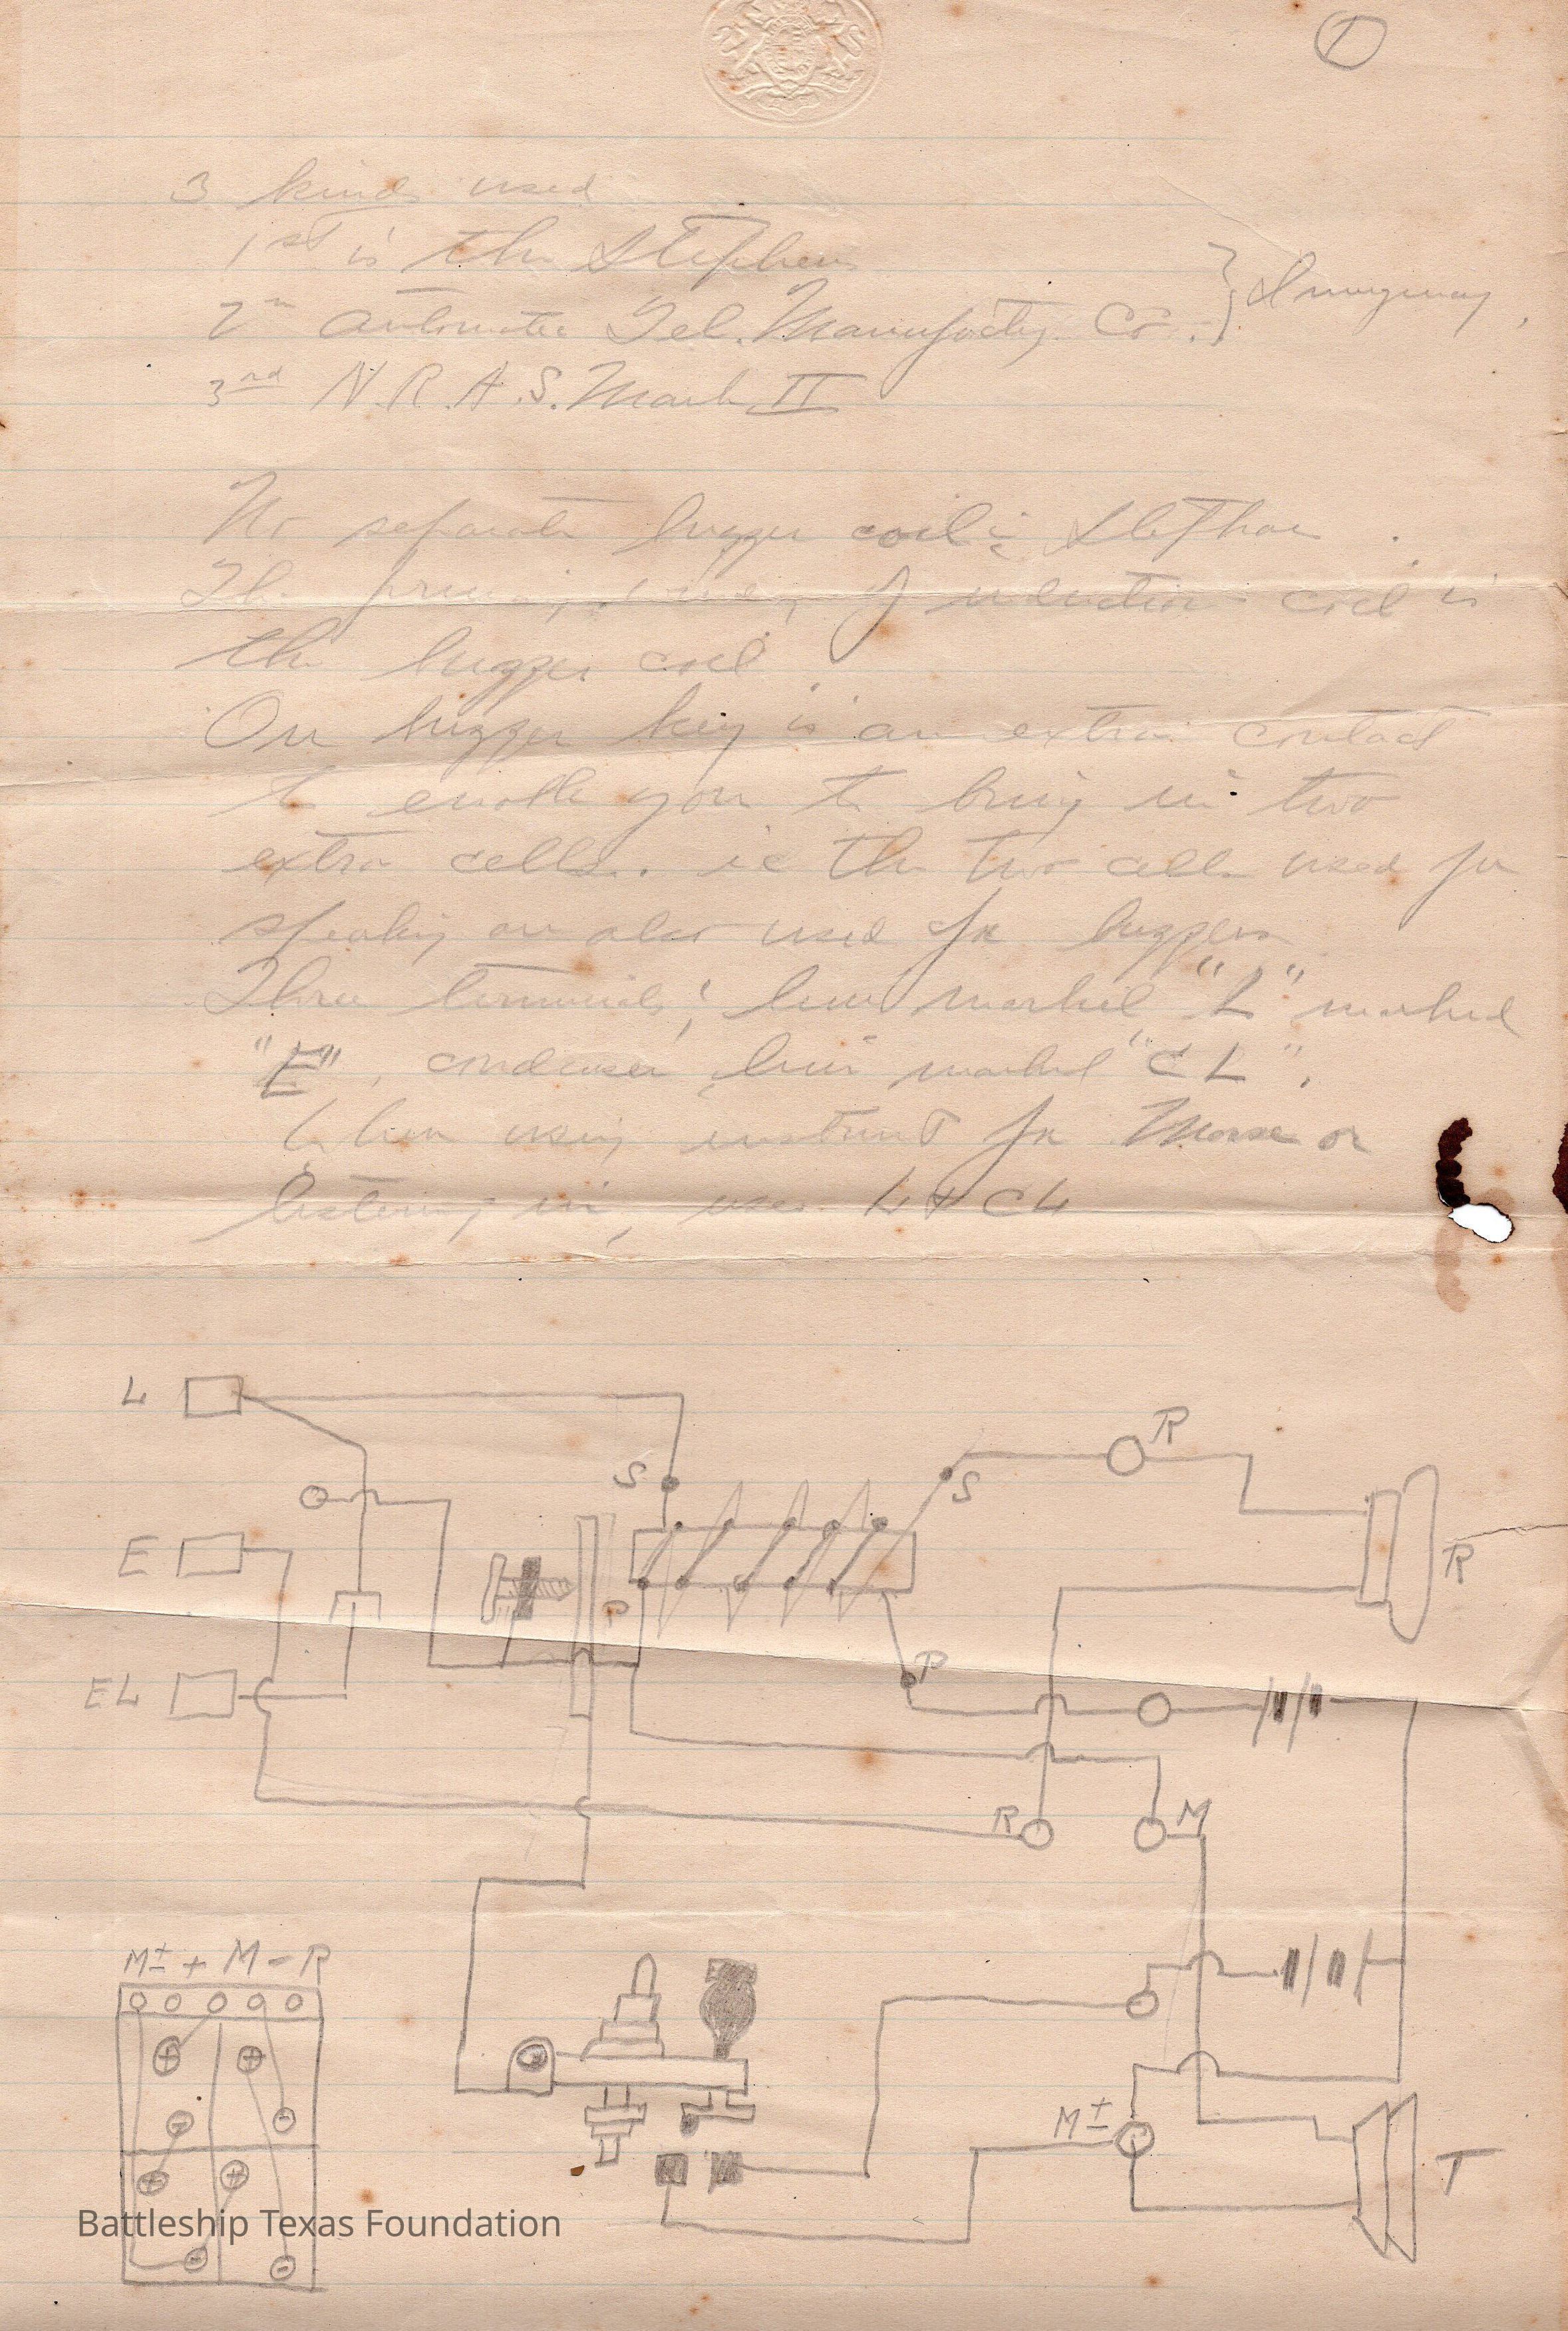 1
3 kinds used
1st is the Stephens
2nd Automatic Tel. Manufactg. Co.
3rd N.R.A.S. Mark II
No separate buzzer coil
The of induction coil is
the buzzer coil
On buzzer key is an extra contact
to enable you to bring in two
extra cells. ie the two cells used for
speaking are also used for buzzers
Three terminals; line marked "L" marked
"E", condenser line marked "CL".
When using for Morse or
listening in, uses L + CL
L
R
S
S
E
R
P
P
EL
R
M
M± + M - R
M±
T
Battleship Texas Foundation